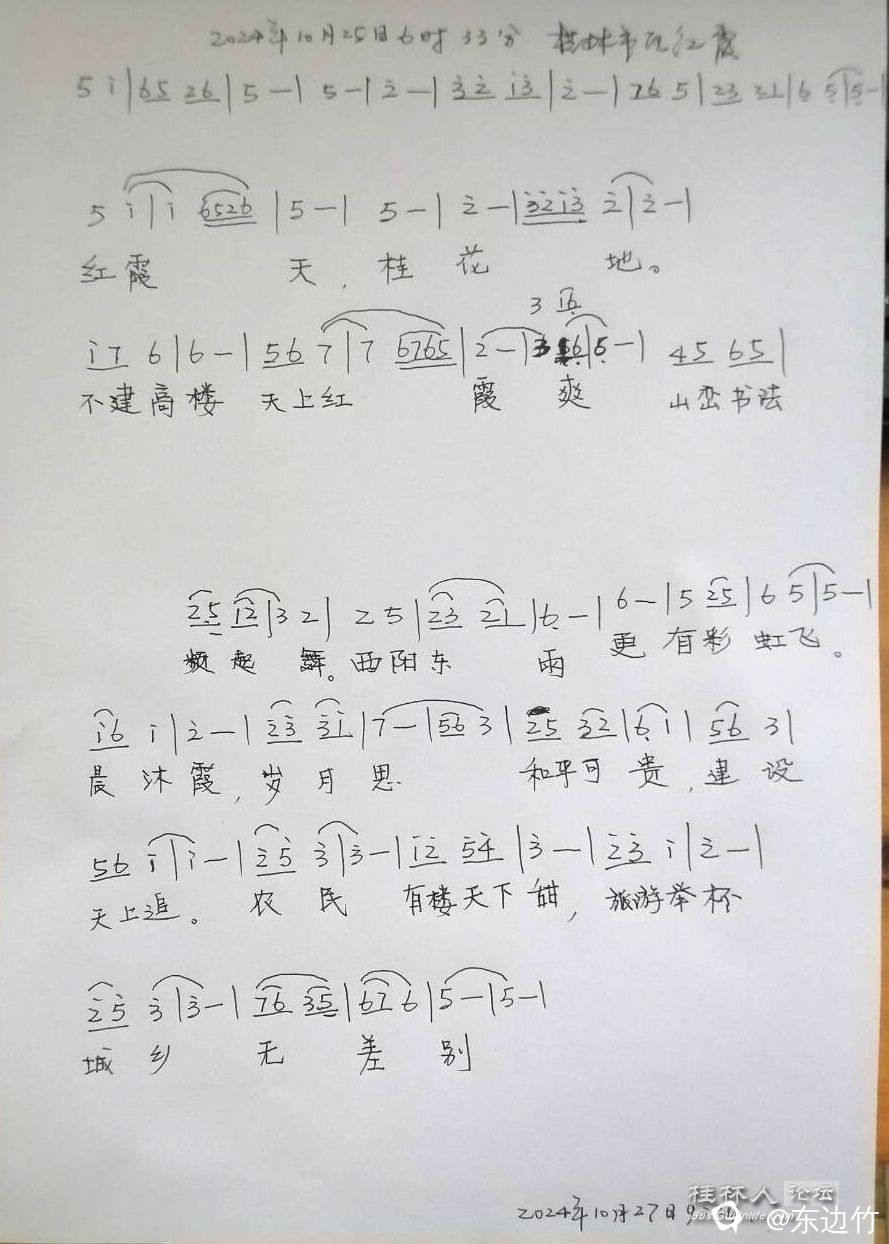 2024年10月25日6时33分 桂林市现红霞
5 i | 65 26 | 5 - | 5 - | 2 - | 32 13 | 2 - | 76 5 | 23 21 | 6 5 | 5 - |
5 i | i 6526 | 5 - | 5 - | 2 - | 3213 2 | 2 - |
红霞 天, 桂 花 地。
3 16
i7 6 | 6 - | 56 7 | 7 6765 | 2 - | 3 56 | 5 - | 45 65 |
不建高楼 天上红 霞 爽 山峦书法
25 12 | 3 2 | 2 5 | 23 21 | 6 - | 6 - | 5 25 | 6 5 | 5 - |
频起舞。西阳东 雨 更 有彩 虹飞。
i6 i | 2 - | 23 31 | 7 - | 56 3 | 25 32 | 6 i | 56 3 |
晨沐霞, 岁月思 和平可贵, 建设
56 i | i - | 25 3 | 3 - | 12 54 | 3 - | 23 i | 2 - |
天上追。 农民 有楼天下甜, 旅游举杯
25 3 | 3 - | 76 35 | 67 6 | 5 - | 5 - |
城乡 无 差 别
桂林人论坛
2024年10月27日9
@东边竹